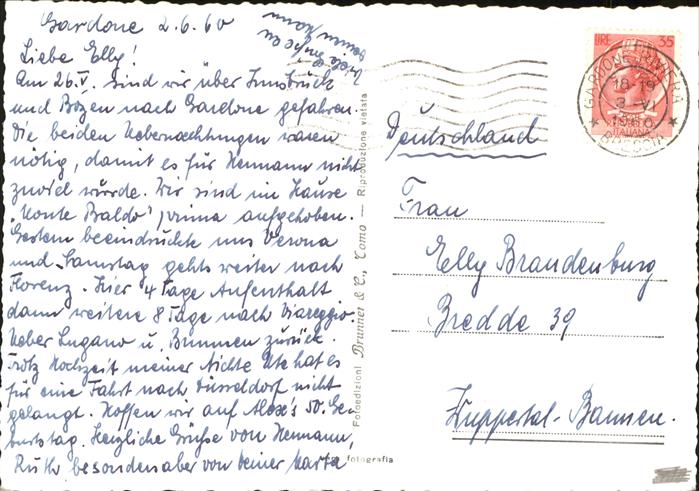 Gardone 2.6.60
Liebe Elly!
Am 26.V. sind wir über Innsbruck
und Bozen nach Gardone gefahren.
Die beiden Uebernachtungen waren
nötig, damit es für Hermann nicht
zuviel würde. Wir sind im Hause
"Monte Baldo" prima aufgehoben.
Gestern beeindruckte uns Verona
und Samstag gehts weiter nach
Florenz. Hier 4 Tage Aufenthalt
dann weitere 8 Tage nach Viareggio.
Ueber Lugano u. Brunnen zurück.
Trotz Hochzeit meiner Nichte Ute hat es
für eine Fahrt nach Düsseldorf nicht
gelangt. Hoffen wir auf Alex's 50. Ge-
burtstag. Herzliche Grüße von Hermann,
Ruth besonders aber von Deiner Marta
Viele Grüße an
Deinen Mann
Fotoedizioni Brunner & C., Como — Riproduzione vietata
fotografia
LIRE 35
ITALIANA
GARDONE RIVIERA
18-19
3-VI
1960
BRESCIA
Deutschland
Frau
Elly Brandenburg
Bredde 39
Wuppertal-Barmen.